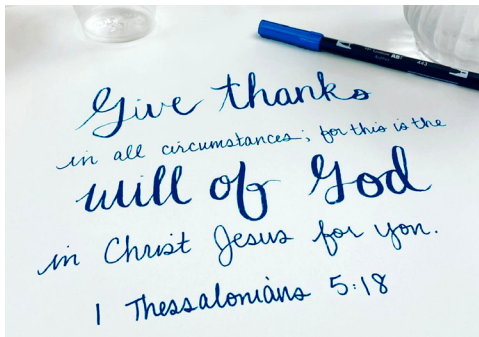 Give thanks
in all circumstances; for this is the
will of God
in Christ Jesus for you.
1 Thessalonians 5:18